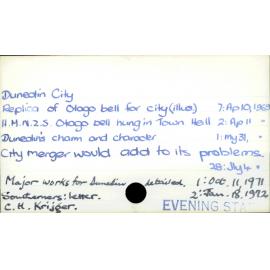 Dunedin City
Replica of Otago bell for city (illus) 7: Ap 10, 1969
H.M.N.Z.S. Otago bell hung in Town Hall 2: Ap 11 "
Dunedin's charm and character 1: my 31, "
City merger would add to its problems.
28: Jly 4 "
Major works for Dunedin detailed. 1: Oct. 11, 1971
Southerners: letter. 2: Jan. 18, 1972
C. H. Krijger.
EVENING STA